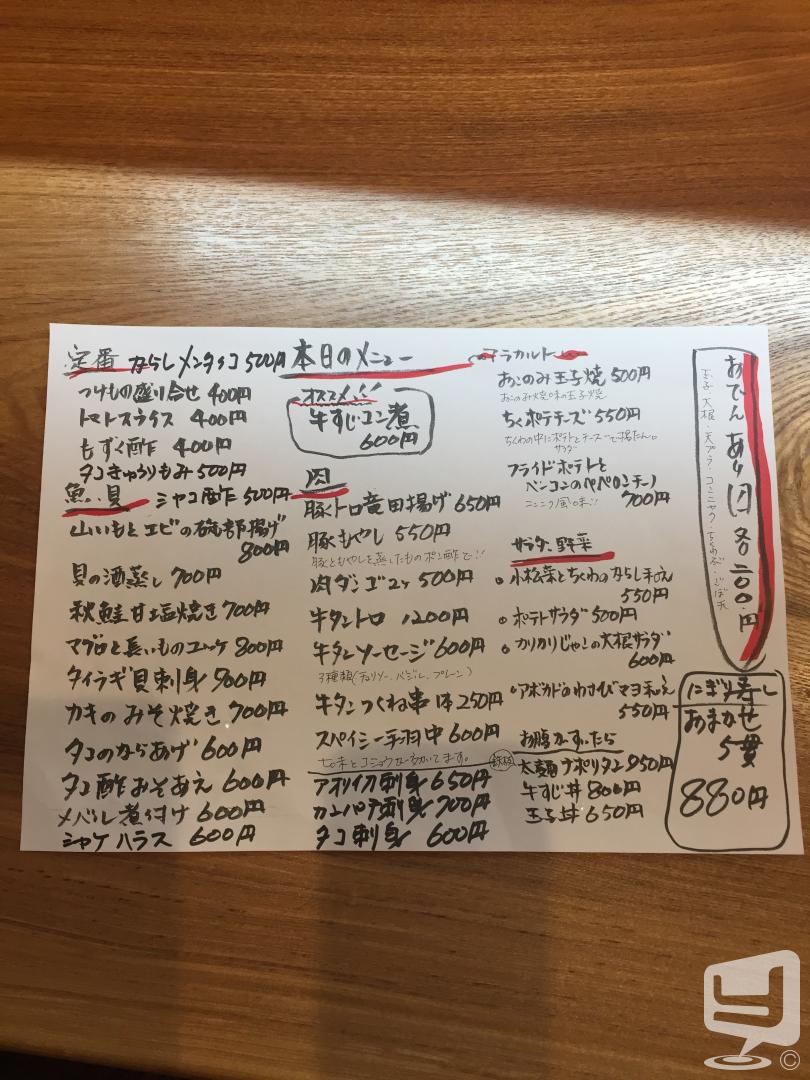 定番 からしメンタイコ 500円
つけもの盛り合せ 400円
トマトスライス 400円
もずく酢 400円
タコきゅうりもみ 500円
魚、貝 シャコ酢 500円
山いもとエビの磯部揚げ
800円
貝の酒蒸し 700円
秋鮭甘塩焼き 700円
マグロと長いものユッケ 800円
タイラギ貝刺身 900円
カキのみそ焼き 700円
タコのからあげ 600円
タコ酢みそあえ 600円
メバル煮付け 600円
シャケハラス 600円
本日のメニュー
オススメ!!
牛すじ・コン煮
600円
肉
豚トロ竜田揚げ 650円
豚もやし 550円
豚ともやしを蒸したものポン酢で!!
肉ダンゴ 500円
牛タントロ 1200円
牛タンソーセージ 600円
3種類(チョリソー、バジル、プレーン)
牛タンつくね串 1本 250円
スパイシー手羽中 600円
七味とコショウが効いてます。
アオリイカ刺身 650円
カンパチ刺身 700円
タコ刺身 600円
アラカルト
おこのみ玉子焼 500円
おこのみ焼味の玉子焼
ちくポテチーズ 550円
ちくわの中にポテトとチーズ
サラダ
フライドポテトと
ベーコンのペペロンチーノ
ニンニク風味!! 700円
サラダ、野菜
・小松菜とちくわのからし和え
550円
・ポテトサラダ 500円
・カリカリじゃこの大根サラダ
600円
・アボカドのわさびマヨ和え
550円
お腹がすいたら
鉄板 太麺ナポリタン 850円
牛すじ丼 800円
玉子丼 650円
おでんあり〼 各二〇〇円
玉子・大根・天プラ・コンニャク・ちくわぶ・ごぼ天
にぎり寿し
おまかせ
5貫
880円